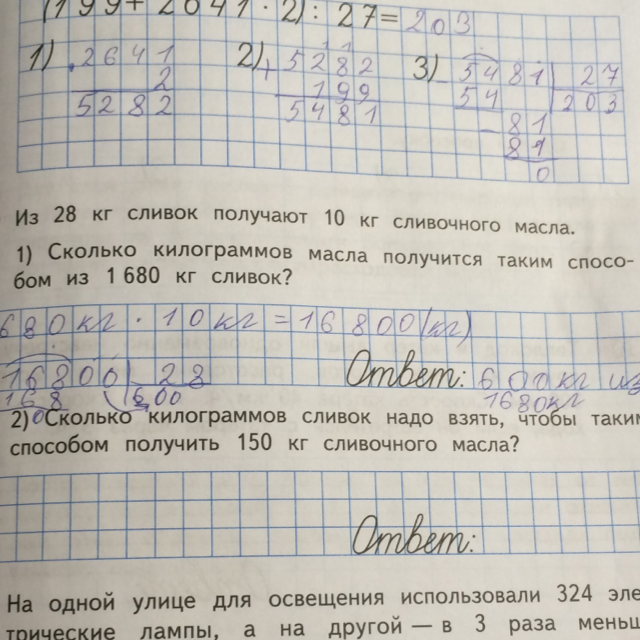 (199+2641·2):27=203
1) 2641 2) 5282 3) 5481 27
2 + 199 54 203
5282 5481 - 81
81
0
Из 28 кг сливок получают 10 кг сливочного масла.
1) Сколько килограммов масла получится таким спосо-
бом из 1 680 кг сливок?
680кг · 10кг = 16 800(кг)
16800 28 Ответ: 600кг из
168 600 1680кг
0
2) Сколько килограммов сливок надо взять, чтобы таким
способом получить 150 кг сливочного масла?
Ответ:
На одной улице для освещения использовали 324 эле
трические лампы, а на другой — в 3 раза меньш